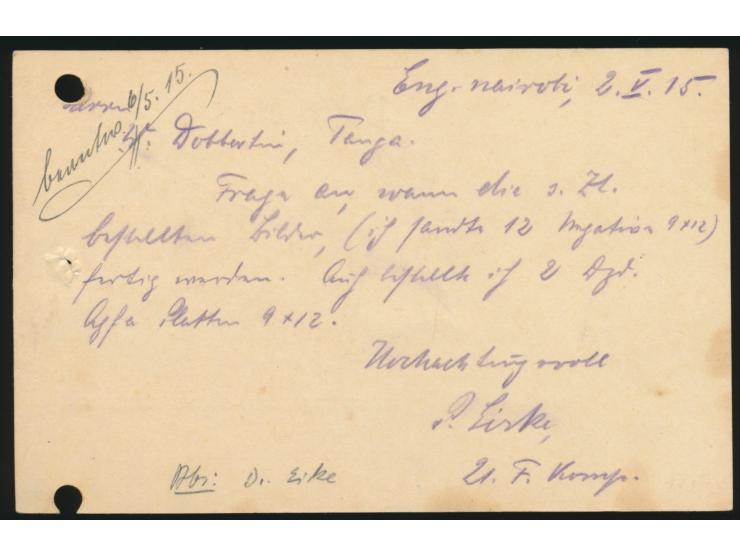 Eng-nairobi, 2.V.15.
beantw. 6/5.15.
Herrn
W. Dobbertin, Tanga.
Frage an, wann die s. Zt.
bestellten Bilder, (ich sandte 12 Negative 9x12)
fertig werden. Auch bestelle ich 2 Dzd.
Agfa Platten 9x12.
Hochachtungsvoll
21. F. Komp.
Abs: D. Eike